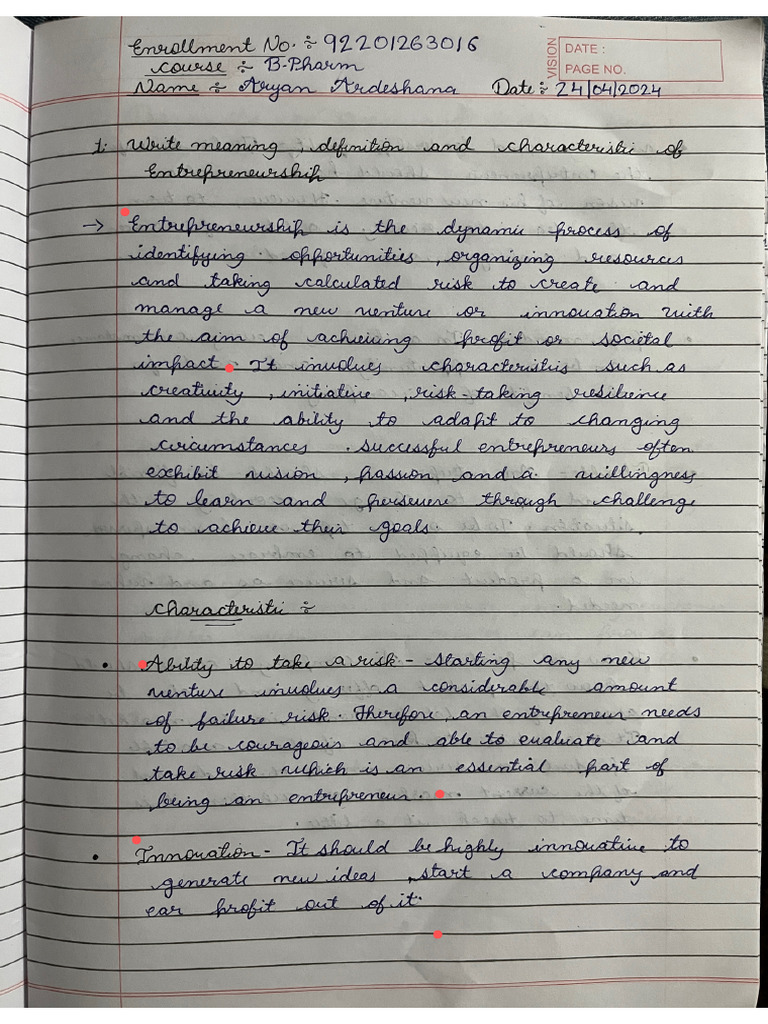 Enrollment No. ÷ 92201263016
Course ÷ B-Pharm
VISION
DATE :
PAGE NO.
Name ÷ Aryan Ardeshana Date ÷ 24/04/2024
1. Write meaning, definition and characteristic of
Entrepreneurship.
→ Entrepreneurship is the dynamic process of
identifying opportunities, organizing resources
and taking calculated risk to create and
manage a new venture or innovation with
the aim of achieving profit or societal
impact. It involves characteristics such as
creativity, initiative, risk-taking resilience
and the ability to adapt to changing
circumstances. Successful entrepreneurs often
exhibit vision, passion and a willingness
to learn and persevere through challenge
to achieve their goals.
Characteristic ÷
• Ability to take a risk - Starting any new
venture involves a considerable amount
of failure risk. Therefore, an entrepreneur needs
to be courageous and able to evaluate and
take risk which is an essential part of
being an entrepreneur.
• Innovation - It should be highly innovative to
generate new ideas, start a company and
ear profit out of it.